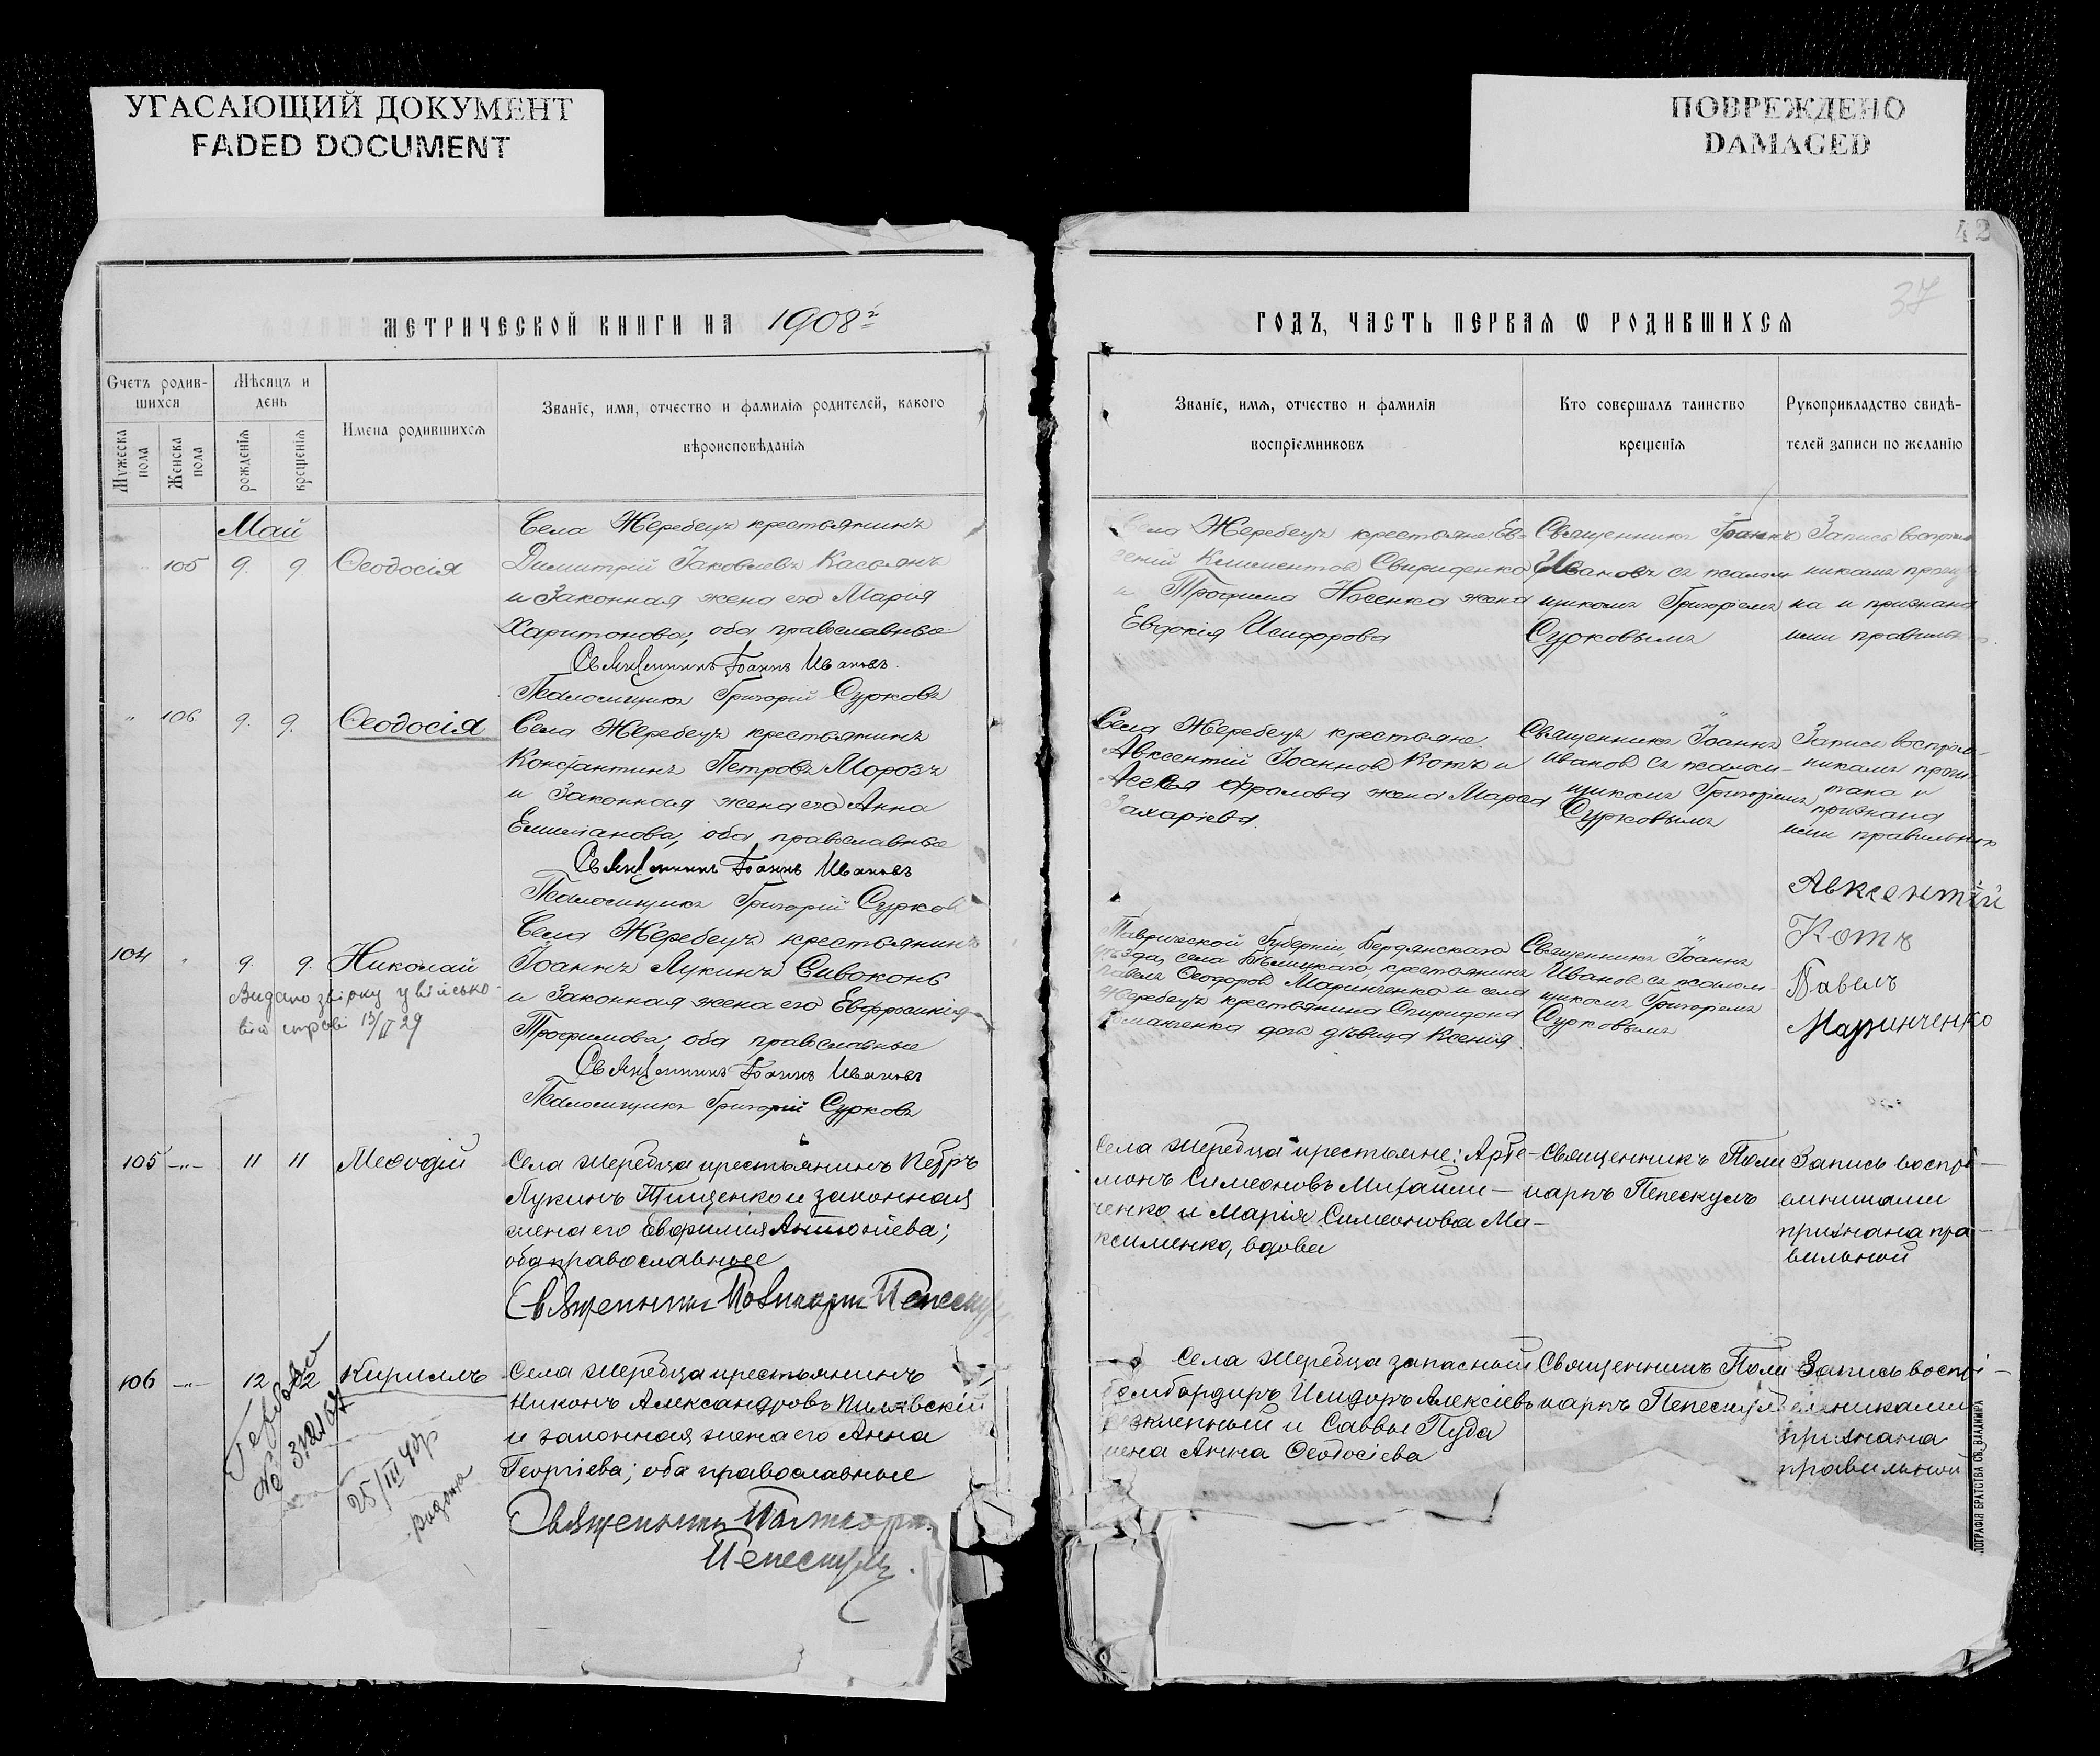 УГАСАЮЩИЙ ДОКУМЕНТ
FADED DOCUMENT
ПОВРЕЖДЕНО
DAMAGED
42
37
МЕТРИЧЕСКОЙ КНИГИ НА 1908 г
ГОДЪ, ЧАСТЬ ПЕРВАЯ Ѡ РОДИВШИХСЯ
Счетъ родив-
шихся
Мужеска
пола
Женска
пола
Мѣсяцъ и
день
рожденія
крещенія
Имена родившихся
Званіе, имя, отчество и фамилія родителей, какого
вѣроисповѣданія
Званіе, имя, отчество и фамилія
воспріемниковъ
Кто совершалъ таинство
крещенія
Рукоприкладство свидѣ-
телей записи по желанію
Май
105 9. 9 Ѳеодосія
Села Жеребецъ крестьянинъ
Димитрій Іаковлевъ Касьянъ
и законная жена его Марія
Харитонова, оба православные
Священникъ Іоаннъ Ивановъ.
Псаломщикъ Григорій Сурковъ
Села Жеребецъ крестьяне: Ев-
гений Климентов Свириденко
и Трофима Носенка жена
Евдокія Исидорова
Священникъ Іоаннъ
Ивановъ съ псалом-
щикомъ Григоріемъ
Сурковымъ
Запись воспріем
никами прочи
на и признана
ими правильн
" 106 9. 9. Ѳеодосія
Села Жеребецъ крестьянинъ
Константинъ Петровъ Морозъ
и законная жена его Анна
Емилианова, оба православные
Священникъ Іоаннъ Ивановъ
Псаломщикъ Григорій Сурков
Села Жеребецъ крестьяне
Авксентій Іоаннов Котъ и
Фролова жена Марѳа
Захаріева.
Священникъ Іоаннъ
Иванов съ псалом-
щикомъ Григоріемъ
Сурковымъ
Запись воспріем-
никами прочи-
тана и
признана
ими правильной
Авксентій
Котъ
104 " 9. 9. Николай
Видано звірку у військо-
вій справі 13/II 29
Села Жеребецъ крестьянинъ
Іоаннъ Лукинъ Сивоконь
и законная жена его Евфросинія
Трофимова, оба православные
Священникъ Іоаннъ Ивановъ
Псаломщикъ Григорій Сурковъ
Таврической Губерніи, Бердянскаго
уѣзда, села крестьянинъ
Павелъ Ѳеодоров Маринченко и села
Жеребецъ крестьянина Спиридона
дочь дѣвица Ксенія.
Священникъ Іоаннъ
Иванов съ псалом-
щикомъ Григоріемъ
Сурковымъ
Павелъ
Маринченко
105 -"- 11 11 Меѳодій
Села Жеребца крестьянинъ Петръ
Лукинъ Тищенко и законная
жена его Евфимія Антоніева;
оба православные
Священникъ Поликарпъ Пепескулъ
Села Жеребца крестьяне: Арте-
монъ Симеоновъ Михайли-
ченко и Марья Симеонова Ма-
ксименко, вдова
Священникъ Поли
карпъ Пепескулъ
Запись воспрі-
емниками
признана пра-
вильной
106 -"- 12 12 Кириллъ
Гербово
№ 312107
25/III 40р
видано
Села Жеребца крестьянинъ
Никонъ Александровъ Пилявскій
и законная жена его Анна
Георгіева; оба православные
Священникъ Поликарпъ
Пепескулъ.
Села Жеребца запасный
бомбардиръ Исидоръ Алексіевъ
и Саввы Пуда
жена Анна Ѳеодосіева
Священникъ Поли
карпъ Пепескулъ
Запись воспрі-
емниками
признана
правильной
ПОГРАФІЯ БРАТСТВА СВ. ВЛАДИМІРА